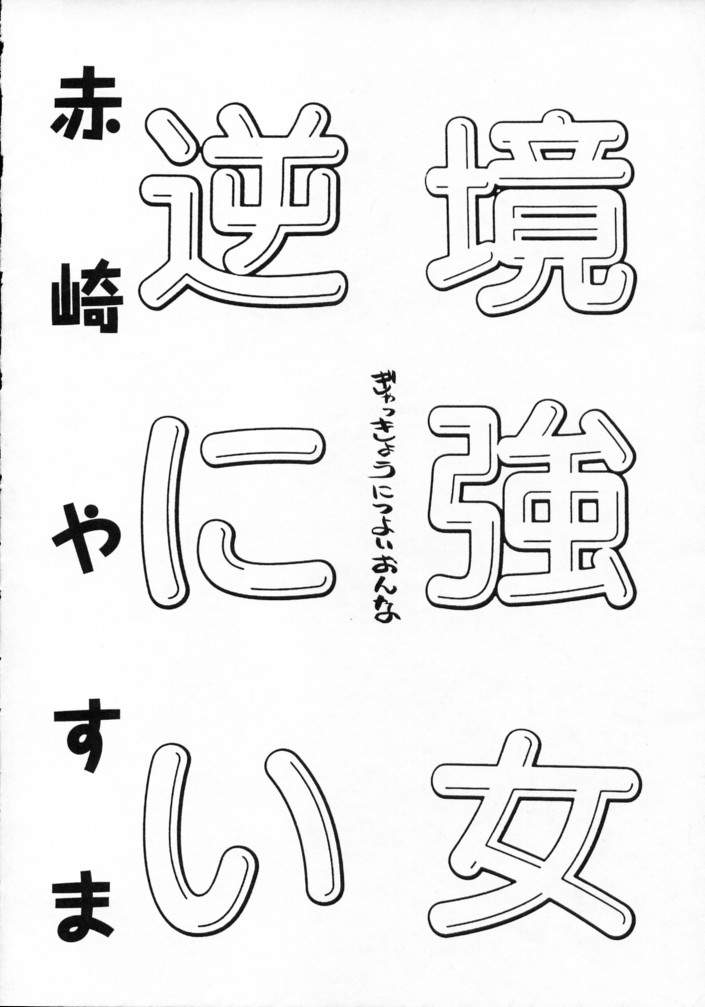 逆境
に強
い女
ぎゃっきょうにつよいおんな
赤崎やすま